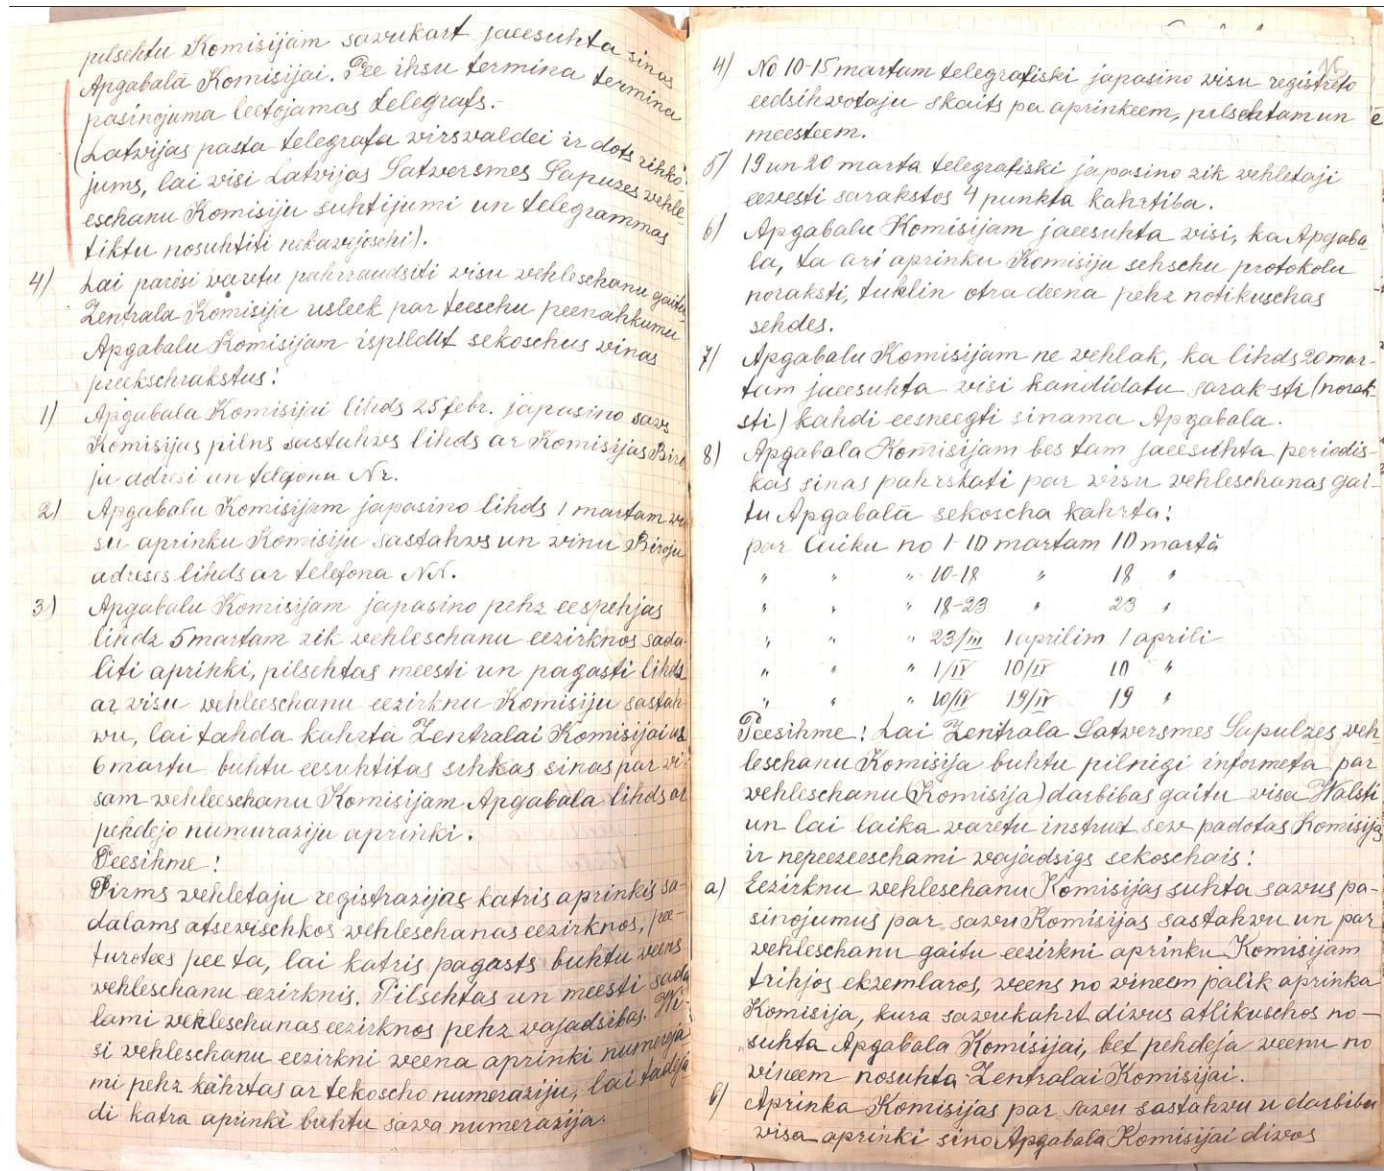 pilsehtu Komisijam savukart jaeesuhta sinas
Apgabalā Komisijai. Pee ihsu termina termina
pasinojuma leetojamas telegrafs.
(Latvijas pasta telegrafa virsvaldei ir dots rihko-
jums, lai visi Latvijas Satversmes Sapuzes vehle-
eschanu Komisiju suhtijumi un telegrammas
tiktu nosuhtiti nekavejoschi).
4) Lai pareisi varetu pahrraudsiti visu vehleschanu gaitu
Zentrala Komisija usleek par teeschu peenahkumu
Apgabalu Komisijam ispildit sekoschus vinas
preekschrakstus:
1) Apgabala Komisijai lihds 25 febr. japasino savs
Komisijas pilns sastahvs lihds ar Komisijas Biro
ju adresi un telefonu Nr.
2) Apgabalu Komisijam japasino lihds 1 martam vi
su aprinku Komisiju sastahvs un vinu Biroju
adreses lihds ar telefona NN.
3) Apgabalu Komisijam japasino pehz eespehjas
lihdz 5 martam zik vehleschanu eezirknos sada
liti aprinki, pilsehtas meesti un pagasti lihds
ar visu vehleeschanu eezirknu Komisiju sastah-
vu, lai tahda kahrta Zentralai Komisijai us
6 martu buhtu eesuhtitas sihkas sinas par vi-
sam vehleeschanu Komisijam Apgabala lihds ar
pehdejo numuraziju aprinki.
Peesihme!
Pirms vehletaju registrazijas katris aprinkis sa-
dalams atsevischkos vehleschanas eezirknos, pee-
turotees pee ta, lai katris pagasts buhtu veens
vehleschanu eezirknis. Pilsehtas un meesti sada
lami vehleschanas eezirknos pehz vajadsibas. Wi-
si vehleschanu eezirkni veena aprinki numereja
mi pehz kahrtas ar tekoscho numeraziju, lai tadeja
di katra aprinki buhtu sava numerazija.
4) No 10-15 martam telegrafiski japasino visu registreto
eedsihvotaju skaits pa aprinkeem, pilsehtam un
meesteem.
5) 19 un 20 marta telegrafiski japasino zik vehletaji
eevesti sarakstos 4 punkta kahrtiba.
6) Apgabalu Komisijam jaeesuhta visi, ka Apgaba-
la, ta ari aprinku Komisiju sehschu protokolu
noraksti, tuhlin otra deena pehz notikuschas
sehdes.
7) Apgabalu Komisijam ne vehlak, ka lihds 20 mar-
tam jaeesuhta visi kandidatu saraksti (norak-
sti) kahdi eesneegti sinama Apgabala.
8) Apgabala Komisijam bes tam jaeesuhta periodis-
kas sinas pahrskati par visu vehleschanas gai-
tu Apgabalā sekoscha kahrta:
par laiku no 1-10 martam 10 martā
" " " 10-18 " 18 "
" " " 18-23 " 23 "
" " " 23/III 1 aprilim 1 aprili
" " " 1/IV 10/IV 10 "
" " " 10/IV 19/IV 19 "
Peesihme! Lai Zentrala Satversmes Sapulzes veh-
leschanu Komisija buhtu pilnigi informeta par
vehleschanu (Komisija) darbibas gaitu visa Walsti
un lai laika varetu instruet sev padotas Komisijas
ir nepeezeeschami vajadsigs sekoschais:
a) Eezirknu vehleschanu Komisijas suhta savus pa-
sinojumus par savu Komisijas sastahvu un par
vehleschanu gaitu eezirkni aprinku Komisijam
trihjos ekzemlaros, veens no vineem palik aprinka
Komisija, kura savukahrt divus atlikuschos no-
suhta Apgabala Komisijai, bet pehdeja veenu no
vineem nosuhta Zentralai Komisijai.
b) Aprinka Komisijas par savu sastahvu u darbibu
visa aprinki sino Apgabala Komisijai divos